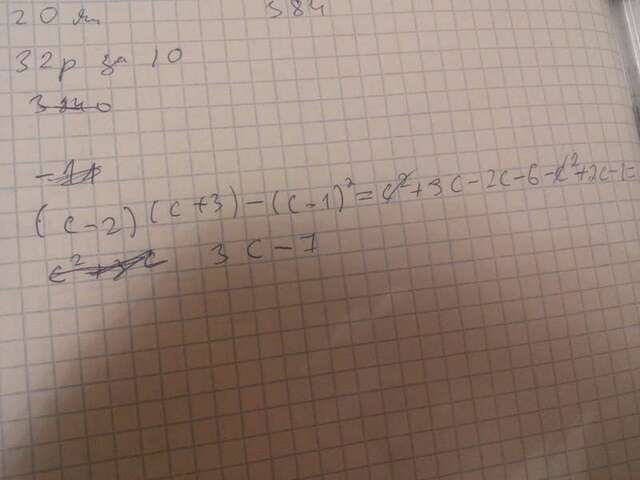 20 л 384
32р за 10
3840
(c-2)(c+3)-(c-1)²=c²+3c-2c-6-c²+2c-1=
c²+3c 3c-7